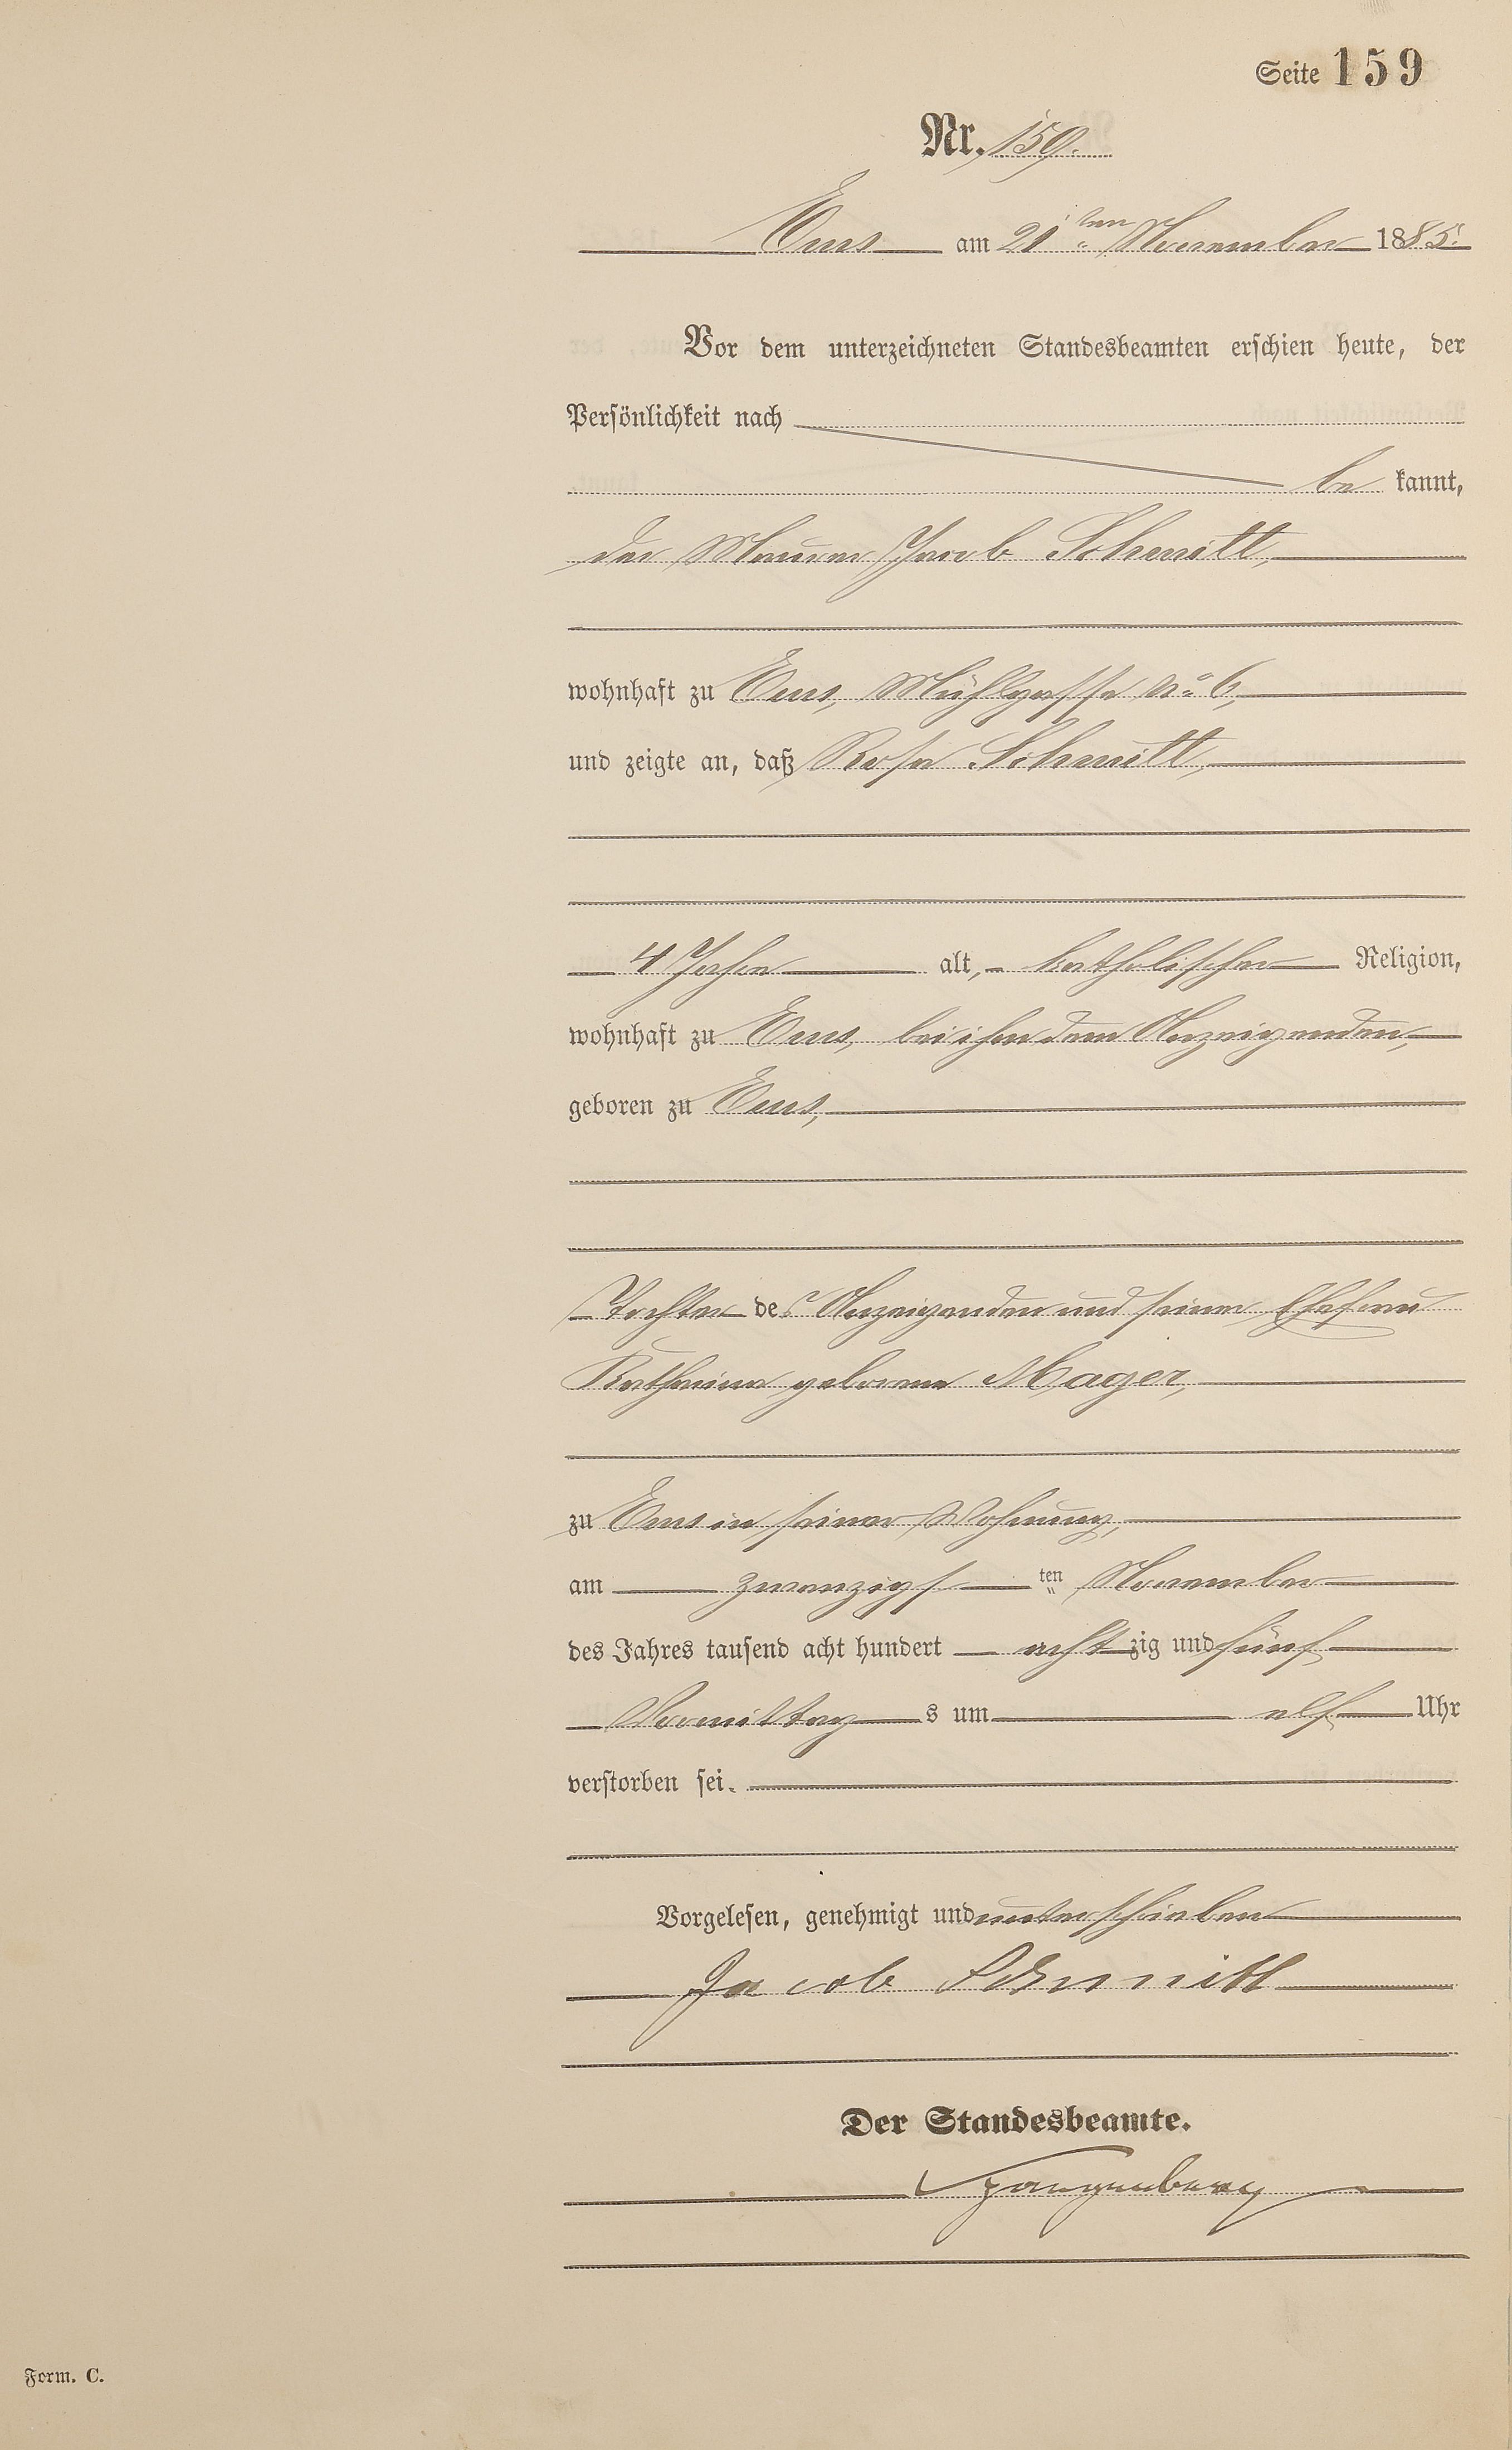 Seite 159
Nr. 159.
Ems am 21ten November 1885.
Vor dem unterzeichneten Standesbeamten erschien heute, der
Persönlichkeit nach
be kannt,
der Maurer Jacob Schmitt,
wohnhaft zu Ems, Mühlgasse No 6,
und zeigte an, daß Rosa Schmitt,
4 Jahre alt, katholischer Religion,
wohnhaft zu Ems, bei ihm dem Anzeigenden,
geboren zu Ems,
Tochter des Anzeigenden und seiner Ehefrau
Katharina geborene Mager,
zu Ems in seiner Wohnung,
am zwanzigsten November
des Jahres tausend acht hundert achtzig und fünf
Vormittags um elf Uhr
verstorben sei.
Vorgelesen, genehmigt und unterschrieben
Jacob Schmitt
Der Standesbeamte.
Spangenberg
Form. C.